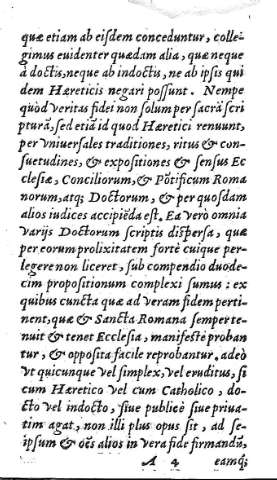 quæ etiam ab eisdem conceduntur, colle-
gimus euidenter quædam alia, quæ neque
à doctis, neque ab indoctis, ne ab ipsis qui
dem Hæreticis negari possunt. Nempe
quòd veritas fidei non solum per sacrã scri
pturã, sed etiã id quod Hæretici renuunt,
per vniuersales traditiones, ritus & con-
suetudines, & expositiones & sensus Ec
clesiæ, Conciliorum, & Põtificum Roma
norum, atq; Doctorum, & per quosdam
alios iudices accipiẽda est. Ea verò omnia
varijs Doctorum scriptis dispersa, quæ
per eorum prolixitatem fortè cuique per-
legere non liceret, sub compendio duode-
cim propositionum complexi sumus: ex
quibus cuncta quæ ad veram fidem perti
nent, quæ & Sancta Romana semper te-
nuit & tenet Ecclesia, manifestè proban
tur, & opposita facile reprobantur. adeò
vt quicunque vel simplex, vel eruditus, si
cum Hæretico vel cum Catholico, do-
cto vel indocto, siue publicè siue priua-
tim agat, non illi plus opus sit, ad se-
ipsum & oẽs alios in vera fide firmandũ,
A 4 eamq́;